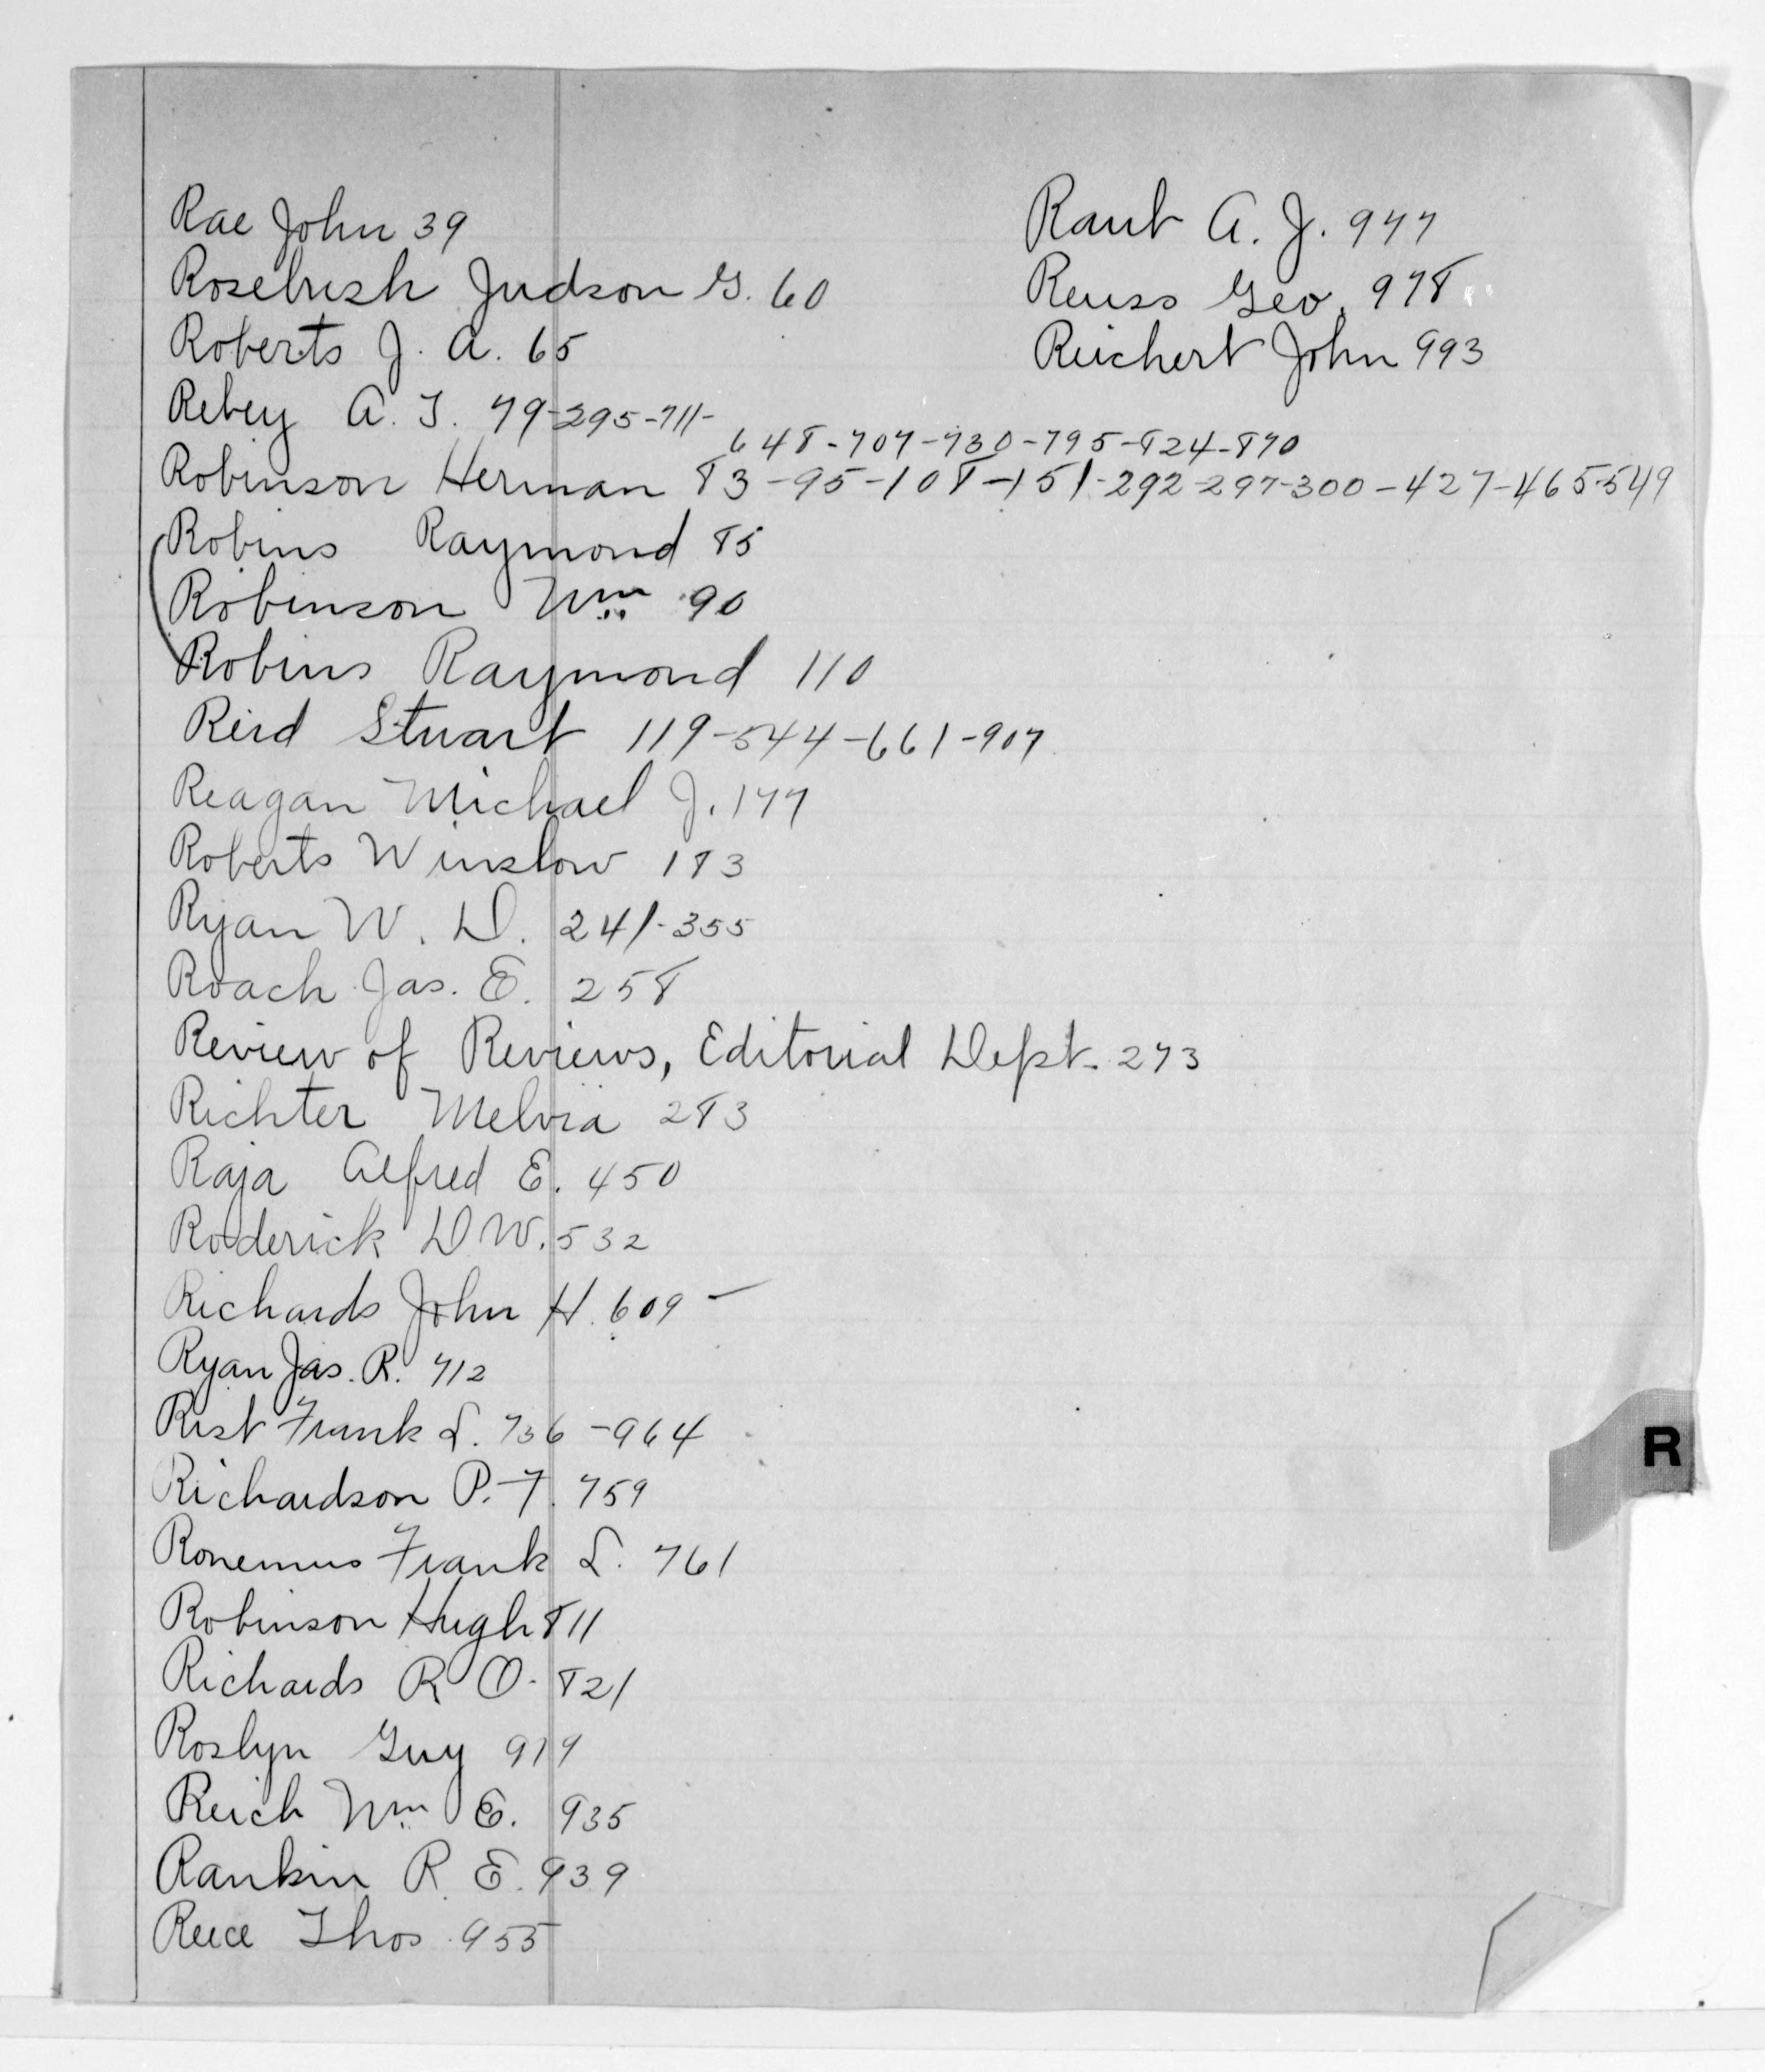 Rae John 39
Rosebush Judson G. 60
Roberts J. A. 65
Rebey A. T. 79-295-711-
648-707-730-795-824-870
Robinson Herman 83-95-108-151-292-297-300-427-465-549
Robins Raymond 85
Robinson Wm 90
Robins Raymond 110
Reid Stuart 119-544-661-907
Reagan Michael J. 177
Roberts Winslow 183
Ryan W. D. 241-355
Roach Jas. E. 258
Review of Reviews, Editorial Dept. 273
Richter Melvia 283
Raja Alfred E. 450
Roderick D W. 532
Richards John H. 609 -
Ryan Jas. R. 712
Rist Frank L. 736-964
Richardson P. F. 759
Ronemus Frank L. 761
Robinson Hugh 811
Richards R O. 821
Roslyn Guy 919
Reich Wm E. 935
Rankin R. E. 939
Reece Thos 955
Raub A. J. 977
Reuss Geo. 978
Reichert John 993
R